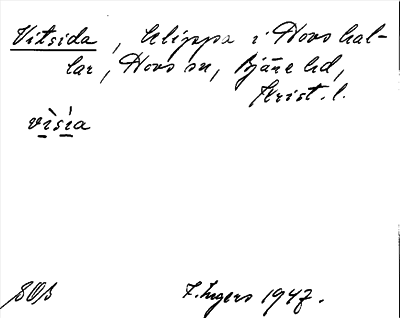 Vitsida, klippa i Hovs hal-
lar, Hovs sn, Bjäre hd,
Krist. l.
vìsía
SOB
F. Ingers 1947.